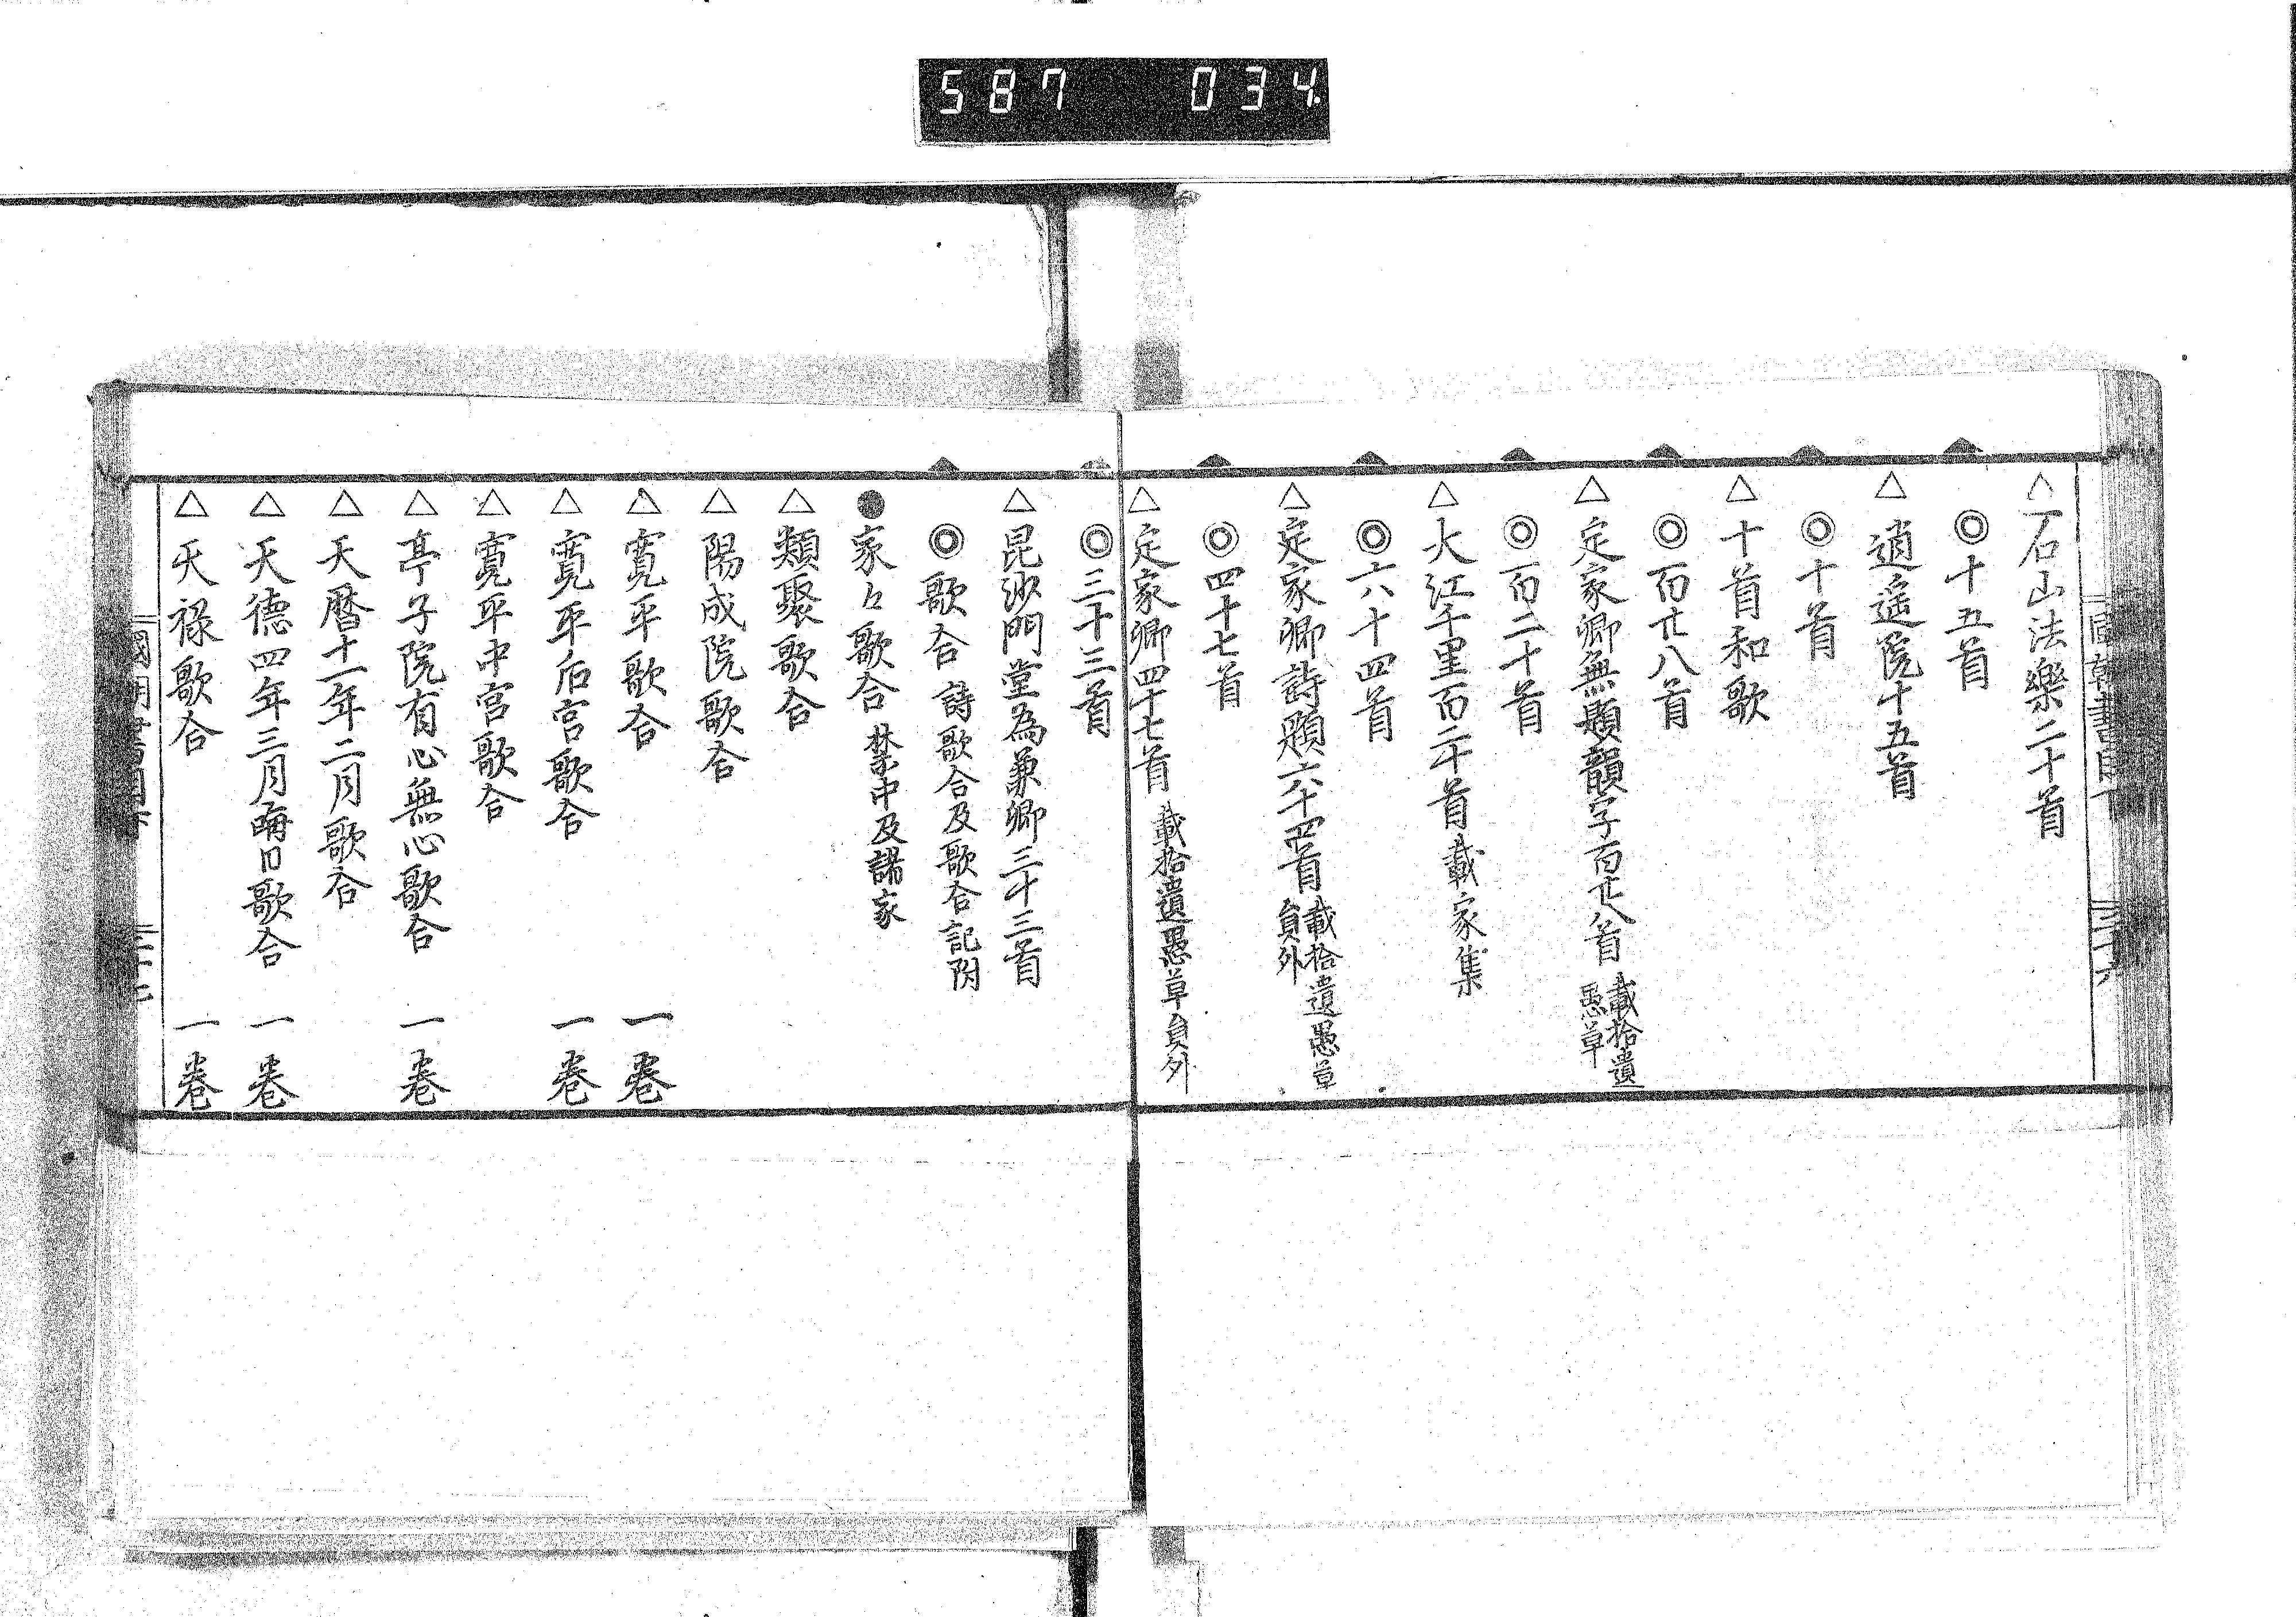 587 034
△石山法樂二十首
◎十五首
△逍遥院十五首
◎十首
△十首和歌
◎百廿八首
△定家卿無題韻字百廿八首 載拾遺愚草
◎百二十首
△大江千里百二十首 載家集
◎六十四首
△定家卿詩題六十四首 載拾遺愚草員外
◎四十七首
△定家卿四十七首 載拾遺愚草員外
◎三十三首
△昆沙門堂為兼卿三十三首
◎歌合 詩歌合及歌合記附
●家々歌合 禁中及諸家
△類聚歌合
△陽成院歌合
△寛平歌合 一巻
△寛平后宮歌合 一巻
△寛平中宮歌合
△亭子院有心無心歌合 一巻
△天暦十一年二月歌合
△天德四年三月晦日歌合 一巻
△天禄歌合 一巻